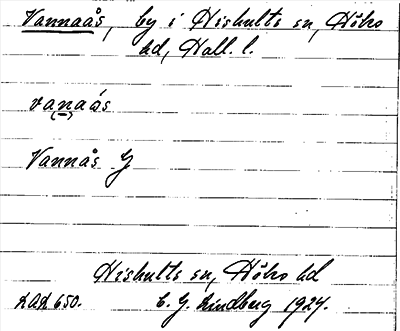 Vannaås, by i Hishults sn, Höks
hd, Hall. l.
vanaás
(–)
Vannås G
Hishults sn, Höks hd
LAL 650. C. G. Lindberg 1924.